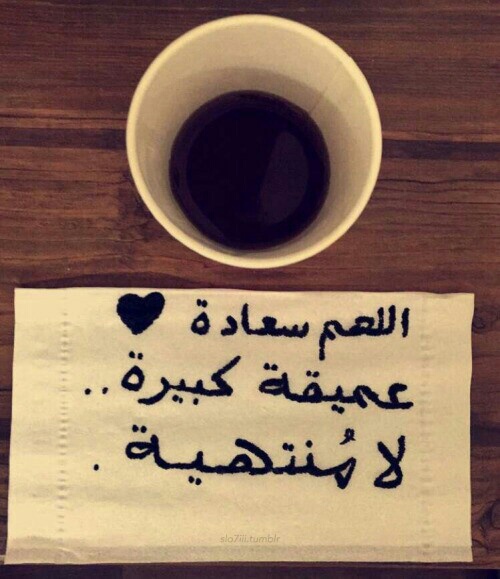 اللهم سعادة ♥
عميقة كبيرة..
لا مُنتهية.
slo7iii.tumblr